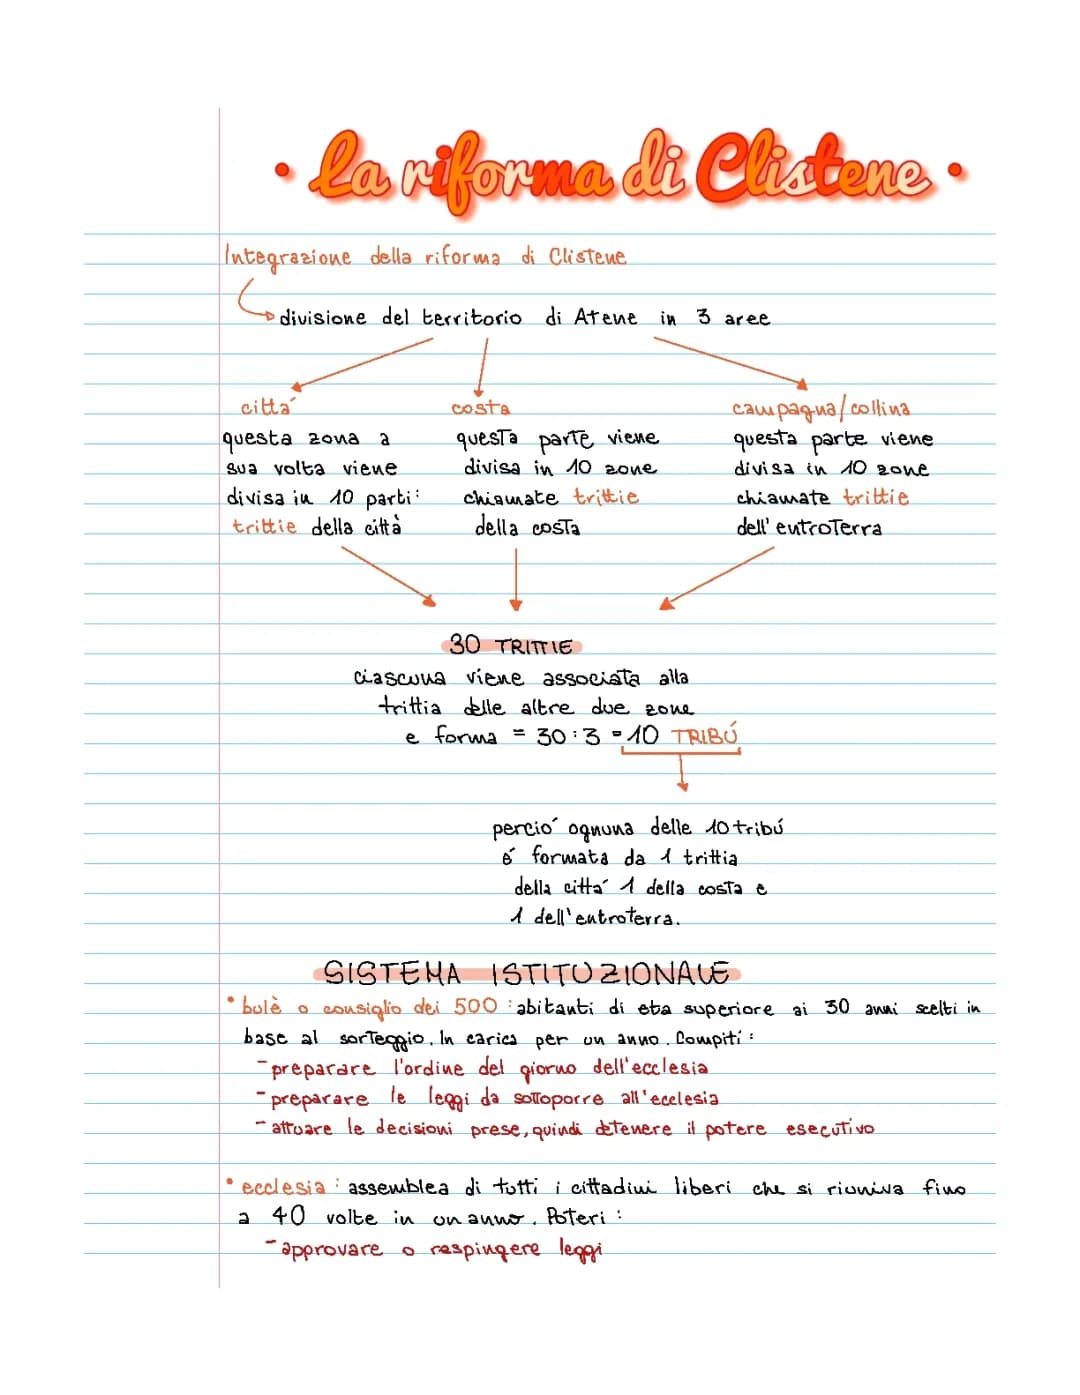 • La riforma di Clistene •
Integrazione della riforma di Clistene
divisione del territorio di Atene in 3 aree
città
questa zona a
sua volta viene
divisa in 10 parti:
trittie della città
costa
questa parte viene
divisa in 10 zone
chiamate trittie
della costa
campagna/collina
questa parte viene
divisa in 10 zone
chiamate trittie
dell'entroterra
30 TRITTIE
ciascuna viene associata alla
trittia delle altre due zone
e forma = 30:3 = 10 TRIBÚ
perció ognuna delle 10 tribú
é formata da 1 trittia
della cittá 1 della costa e
1 dell'entroterra.
SISTEMA ISTITUZIONALE
• bulè o consiglio dei 500: abitanti di eta superiore ai 30 anni scelti in
base al sorteggio. In carica per un anno. Compiti:
- preparare l'ordine del giorno dell'ecclesia
- preparare le leggi da sottoporre all'ecclesia
- attuare le decisioni prese, quindi detenere il potere esecutivo
• ecclesia: assemblea di tutti i cittadini liberi che si riuniva fino
a 40 volte in un anno. Poteri:
- approvare o respingere leggi